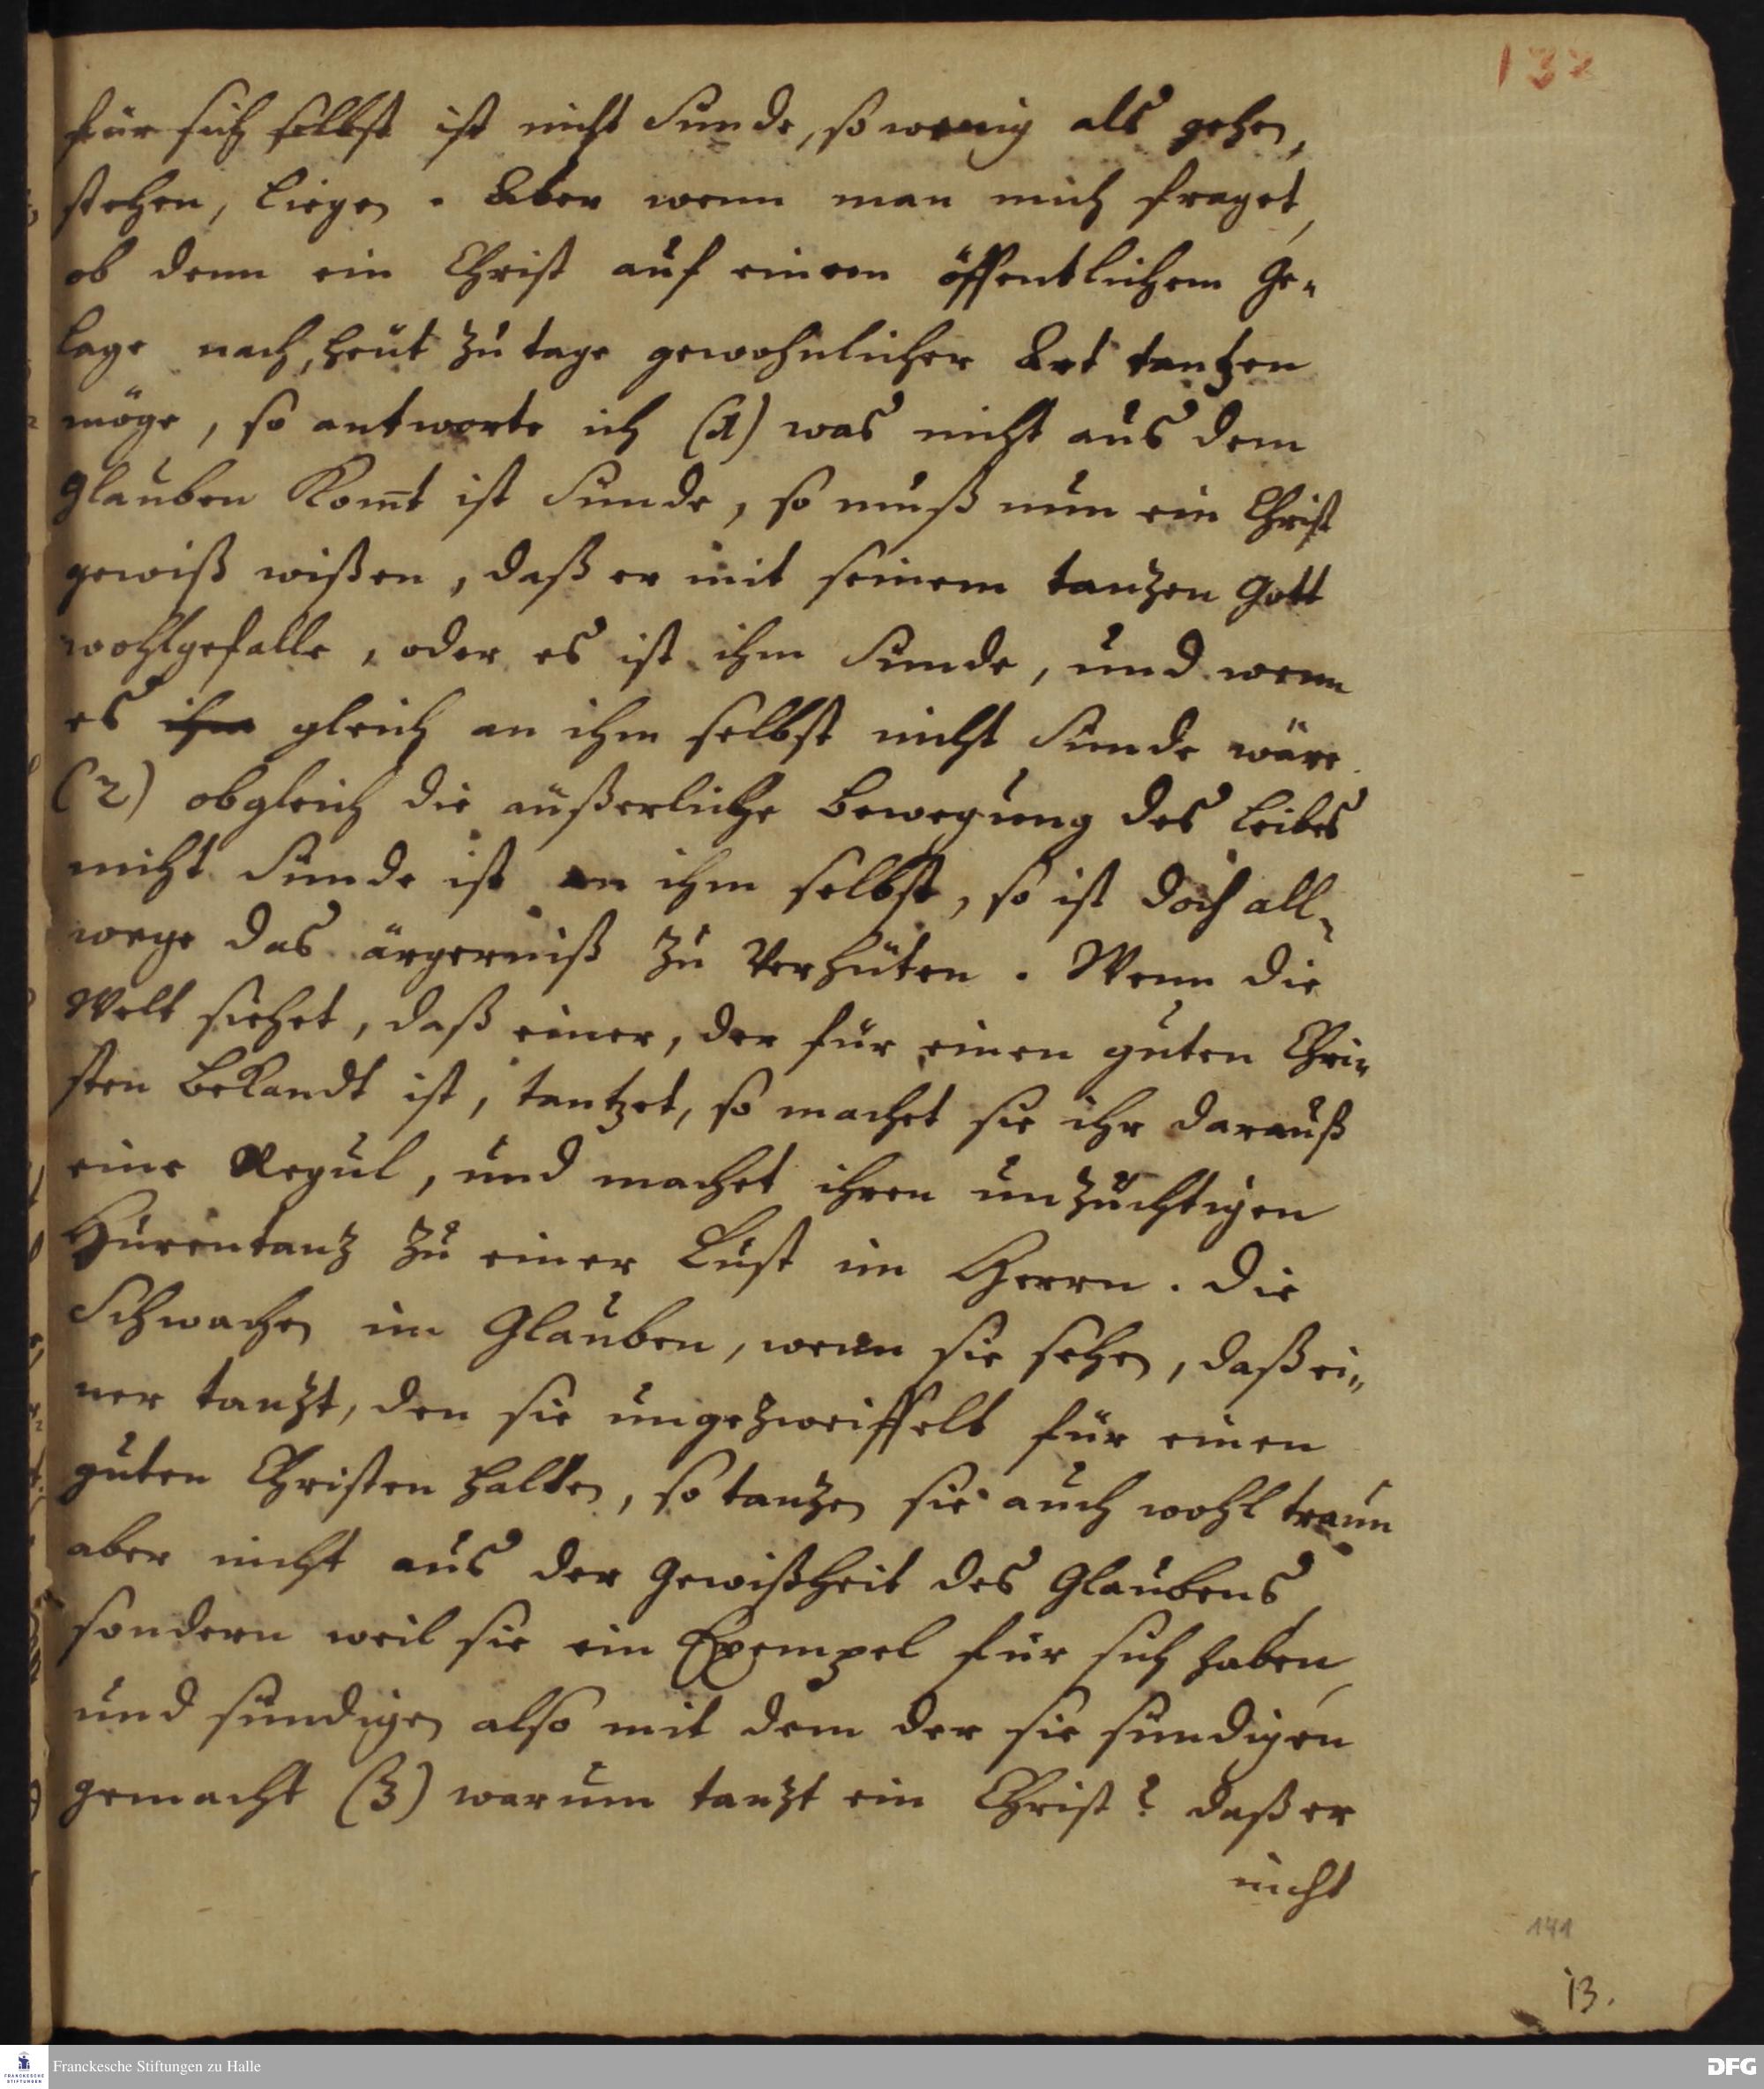 137
für sich selbst ist nicht Sünde, so wenig als gehen,
stehen, liegen. Aber wenn man mich fraget,
ob denn ein Christ auf einem öffentlichem Ge-
lage nach heut zu tage gewohnlicher Art tantzen
möge, so antworte ich (1) was nicht aus dem
Glauben komt ist Sunde, so muß nun ein Christ
gewiß wißen, daß er mit seinem tanzen Gott
wohlgefalle, oder es ist ihm Sunde, und wenn
es ihm gleich an ihm selbst nicht Sunde wäre.
(2) obgleich die äußerliche bewegung des leibes
nicht Sunde ist an ihm selbst, so ist doch all-
wege das ärgerniß zu verhüten. Wenn die
Welt siehet, daß einer, der für einen guten Chri-
sten bekandt ist, tantzet, so machet sie ihr darauß
eine Regul, und machet ihren unzüchtigen
Hurentanz zu einer Lust im Herrn. Die
Schwachen im Glauben, wenn sie sehen, daß ei-
ner tanzt, den sie ungezweiffelt für einen
guten Christen halten, so tanzen sie auch wohl traun
aber nicht aus der Gewißheit des Glaubens,
sondern weil sie ein Exempel für sich haben,
und sündigen also mit dem der sie sündigen
gemacht (3) warum tanzt ein Christ? daß er
nicht
141
13.
FRANCKESCHE STIFTUNGEN
Franckesche Stiftungen zu Halle
DFG